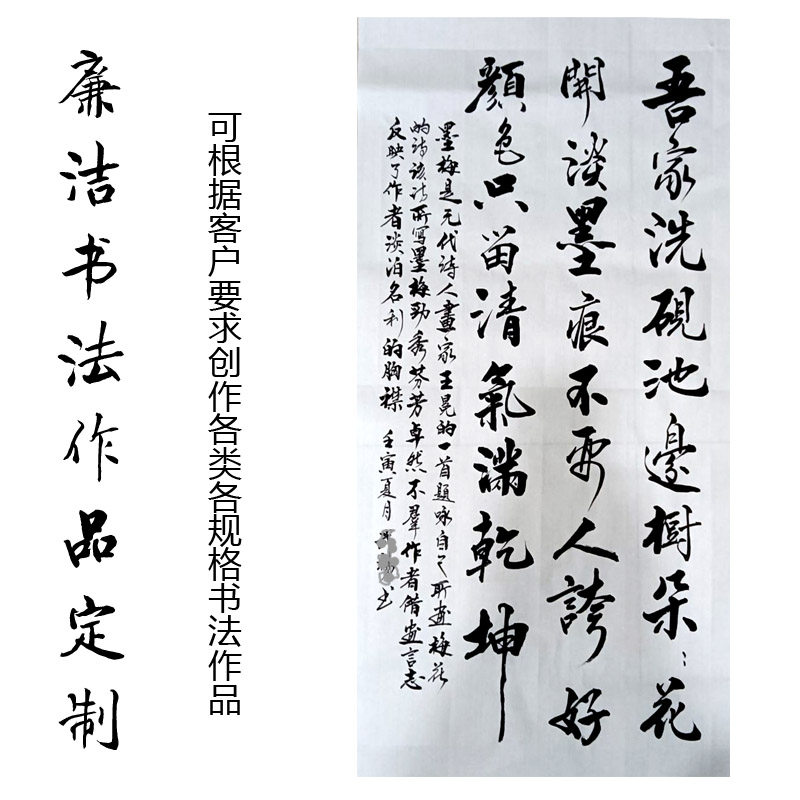 廉洁书法作品定制
可根据客户要求创作各类各规格书法作品
吾家洗硯池邊樹朵〻花
開淡墨痕不要人誇好
顏色只留清氣滿乾坤
墨梅是元代詩人畫家王冕的一首題咏自己所畫梅花
的詩該詩所写墨梅勁秀芬芳卓然不羣作者借畫言志
反映了作者淡泊名利的胸襟 壬寅夏月 书